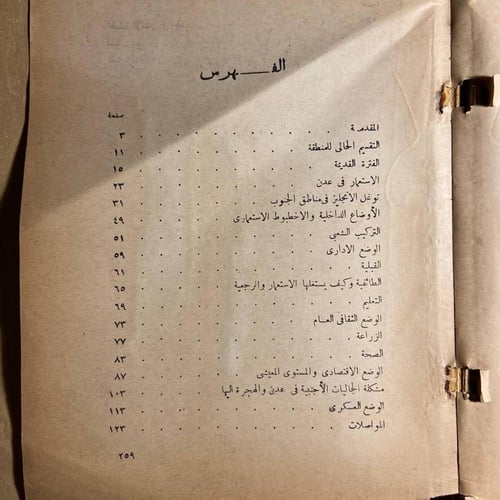 الفهرس
صفحة
المقدمة . . . . . . . . . . ٣
التقسيم الحالى للمنطقة . . . . . . . . ١١
الفترة القديمة . . . . . . . . . ١٥
الاستعمار فى عدن . . . . . . . . ٢٣
توغل الانجليز فى مناطق الجنوب . . . . . . ٣١
الأوضاع الداخلية والاخطبوط الاستعمارى . . . . ٤٩
التركيب الشعبى . . . . . . . . ٥١
الوضع الادارى . . . . . . . . ٥٩
القبلية . . . . . . . . . . ٦١
الطائفية وكيف يستغلها الاستعمار والرجعية . . . . ٦٥
التعليم . . . . . . . . . . ٦٩
الوضع الثقافى العام . . . . . . . . ٧٣
الزراعة . . . . . . . . . . ٧٧
الصحة . . . . . . . . . . ٨٣
الوضع الاقتصادى والمستوى المعيشى . . . . . ٨٧
مشكلة الجاليات الأجنبية فى عدن والهجرة اليها . . . ١٠٣
الوضع العسكرى . . . . . . . . ١١٣
المواصلات . . . . . . . . . ١٢٣
٢٥٩